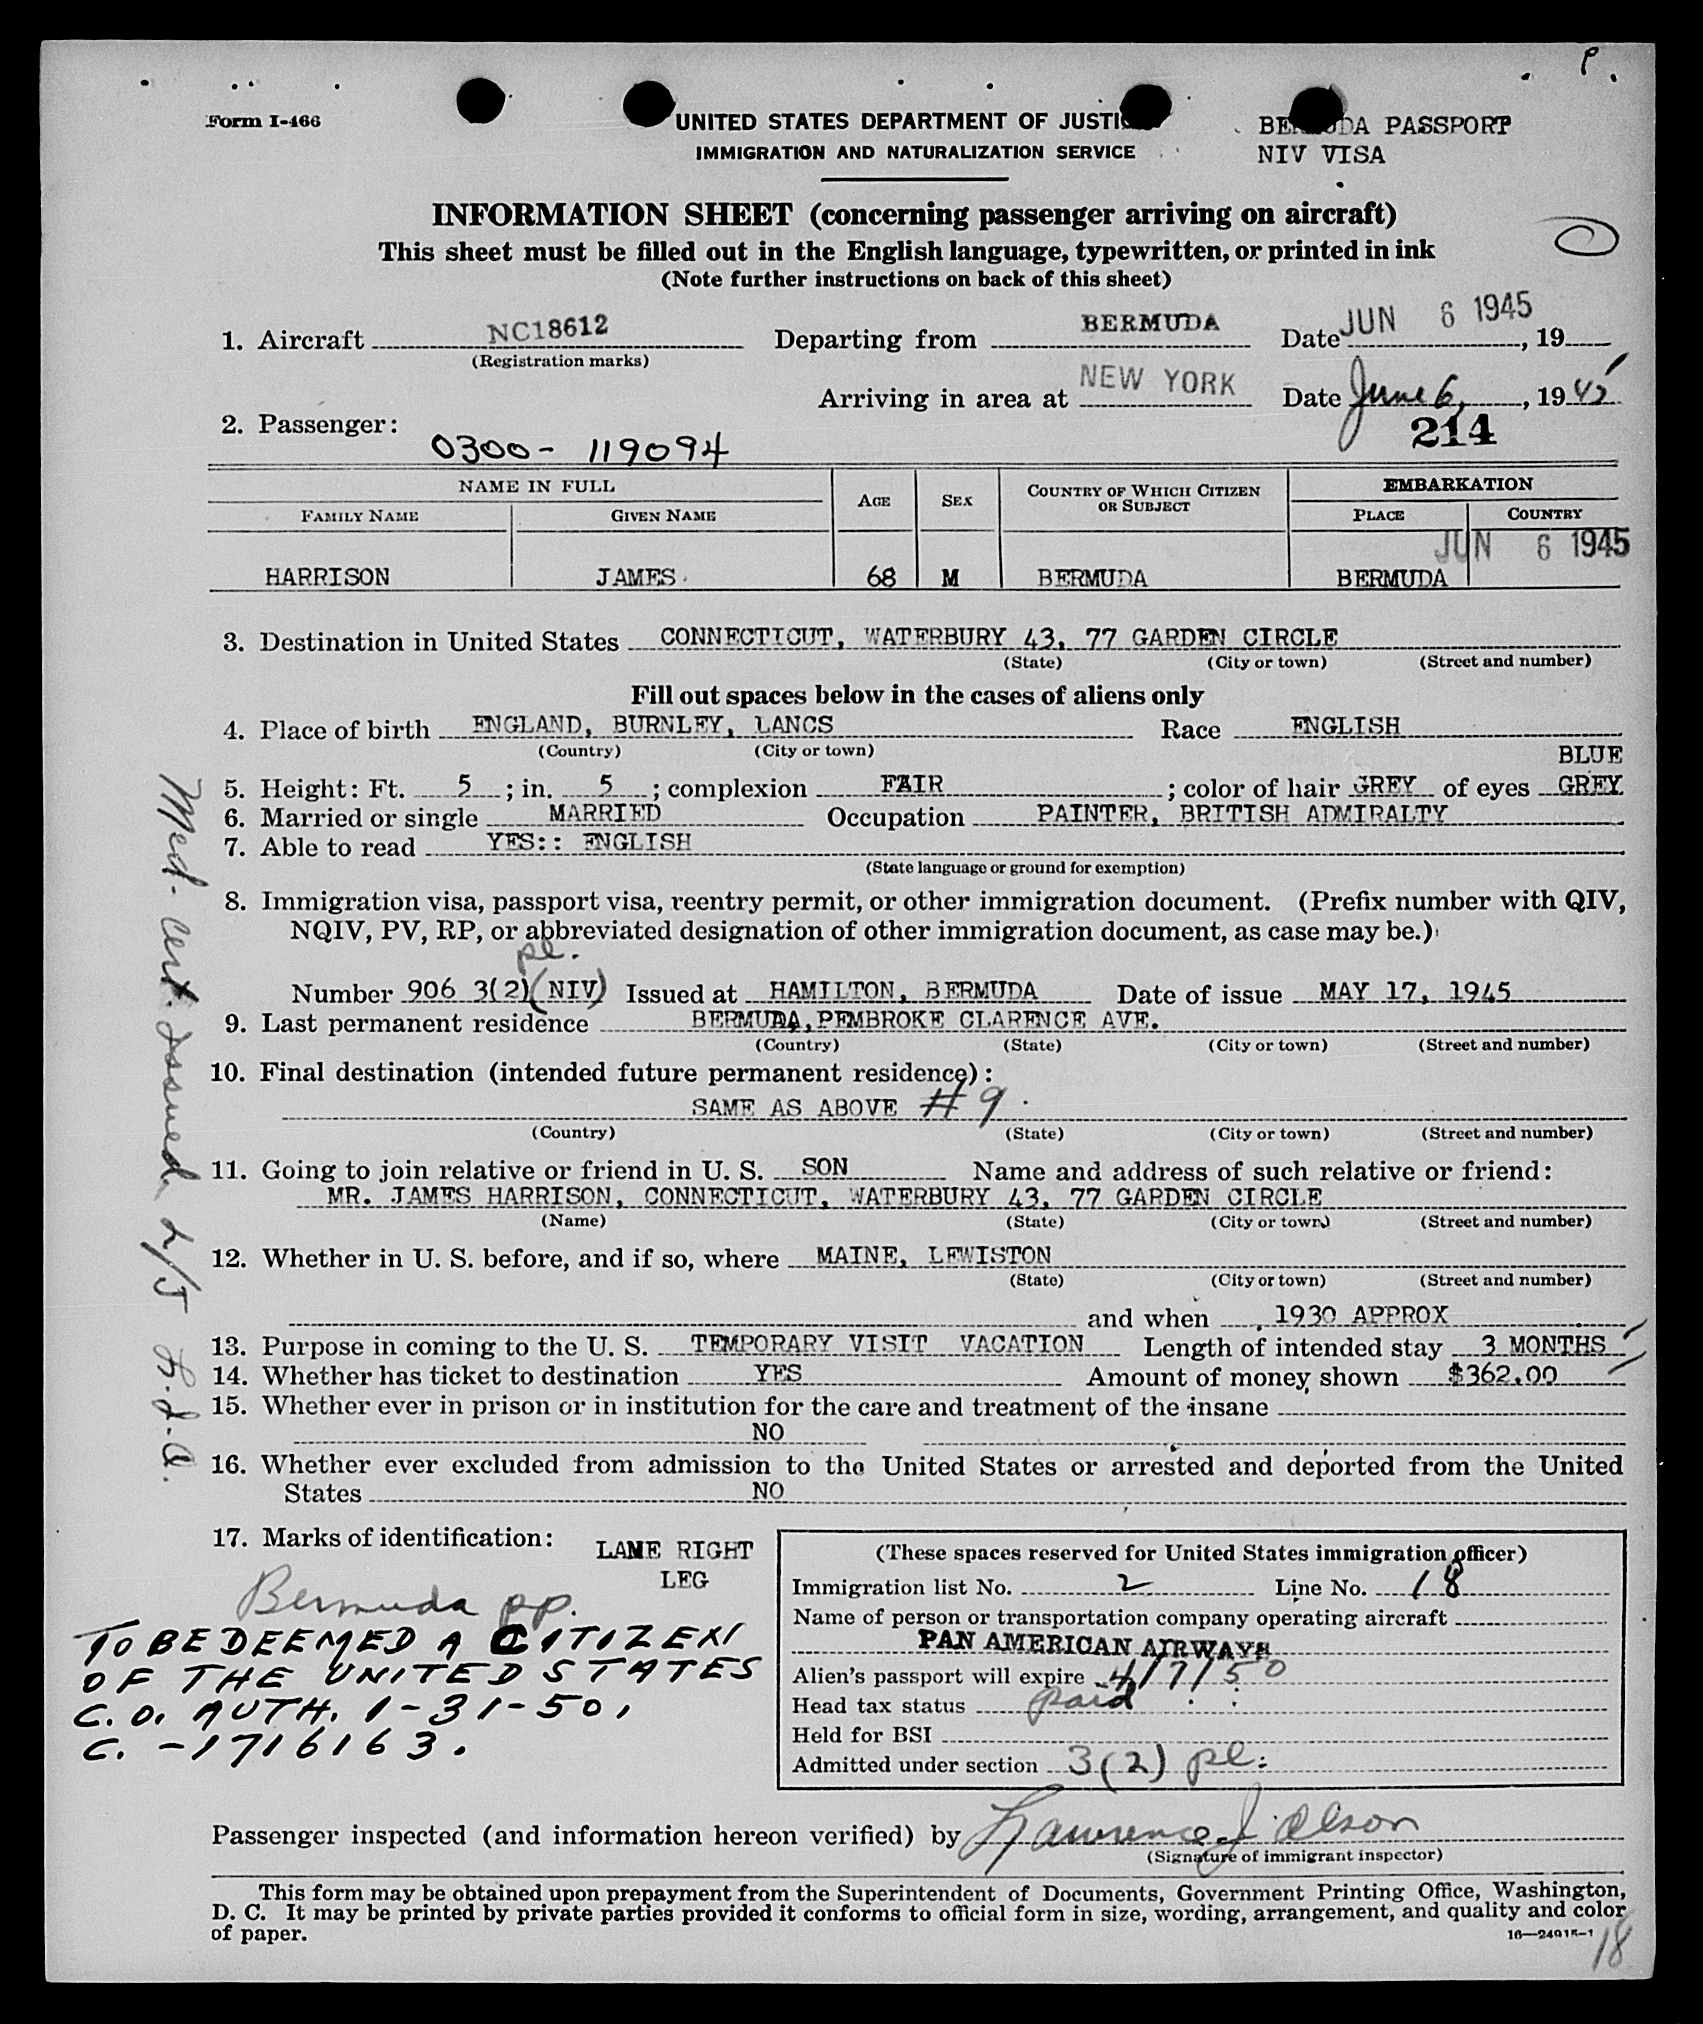 P.
Form I-466
UNITED STATES DEPARTMENT OF JUSTI
IMMIGRATION AND NATURALIZATION SERVICE
BERMUDA PASSPORT
NIV VISA
INFORMATION SHEET (concerning passenger arriving on aircraft)
This sheet must be filled out in the English language, typewritten, or printed in ink
(Note further instructions on back of this sheet)
1. Aircraft NC18612 Departing from BERMUDA Date JUN 6 1945, 19
(Registration marks)
Arriving in area at NEW YORK Date June 6, 1945
2. Passenger: 214
0300- 119094
NAME IN FULL AGE SEX COUNTRY OF WHICH CITIZEN OR SUBJECT EMBARKATION
FAMILY NAME GIVEN NAME PLACE COUNTRY
JUN 6 1945
HARRISON JAMES 68 M BERMUDA BERMUDA
3. Destination in United States CONNECTICUT, WATERBURY 43, 77 GARDEN CIRCLE
(State) (City or town) (Street and number)
Fill out spaces below in the cases of aliens only
4. Place of birth ENGLAND, BURNLEY, LANCS Race ENGLISH
(Country) (City or town)
BLUE
5. Height: Ft. 5 ; in. 5 ; complexion FAIR ; color of hair GREY of eyes GREY
6. Married or single MARRIED Occupation PAINTER, BRITISH ADMIRALTY
7. Able to read YES:: ENGLISH
(State language or ground for exemption)
8. Immigration visa, passport visa, reentry permit, or other immigration document. (Prefix number with QIV,
NQIV, PV, RP, or abbreviated designation of other immigration document, as case may be.)
pl.
Number 906 3(2)(NIV) Issued at HAMILTON, BERMUDA Date of issue MAY 17, 1945
9. Last permanent residence BERMUDA, PEMBROKE CLARENCE AVE.
(Country) (State) (City or town) (Street and number)
10. Final destination (intended future permanent residence):
SAME AS ABOVE #9.
(Country) (State) (City or town) (Street and number)
11. Going to join relative or friend in U. S. SON Name and address of such relative or friend:
MR. JAMES HARRISON, CONNECTICUT, WATERBURY 43, 77 GARDEN CIRCLE
(Name) (State) (City or town) (Street and number)
12. Whether in U. S. before, and if so, where MAINE, LEWISTON
(State) (City or town) (Street and number)
and when 1930 APPROX
13. Purpose in coming to the U. S. TEMPORARY VISIT VACATION Length of intended stay 3 MONTHS
14. Whether has ticket to destination YES Amount of money shown $362.00
15. Whether ever in prison or in institution for the care and treatment of the insane
NO
16. Whether ever excluded from admission to the United States or arrested and deported from the United
States NO
17. Marks of identification: LAME RIGHT
LEG
Bermuda pp.
TO BE DEEMED A CITIZEN
OF THE UNITED STATES
C.O. AUTH. 1-31-50,
C. -1716163.
Med. Cert. Issued, L/J
(These spaces reserved for United States immigration officer)
Immigration list No. 2 Line No. 18
Name of person or transportation company operating aircraft
PAN AMERICAN AIRWAYS
Alien's passport will expire 4/7/50
Head tax status paid
Held for BSI
Admitted under section 3(2) pl.
Passenger inspected (and information hereon verified) by Lawrence J. Olson
(Signature of immigrant inspector)
This form may be obtained upon prepayment from the Superintendent of Documents, Government Printing Office, Washington,
D. C. It may be printed by private parties provided it conforms to official form in size, wording, arrangement, and quality and color
of paper. 16—24915-1
18